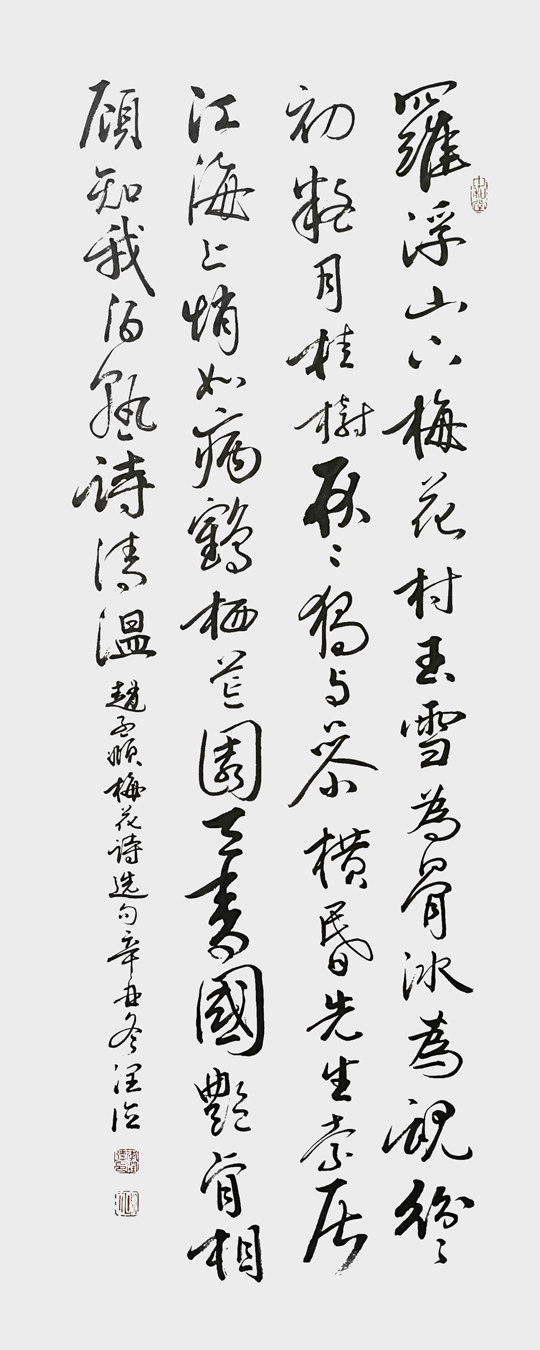 羅浮山下梅花村玉雪為骨冰為魂紛〻
初疑月桂樹耿〻獨与參橫昏先生索居
江海上悄如病鶴栖荒園天香國艷肯相
顧知我酒熟詩清溫
趙孟頫梅花詩選句辛丑冬